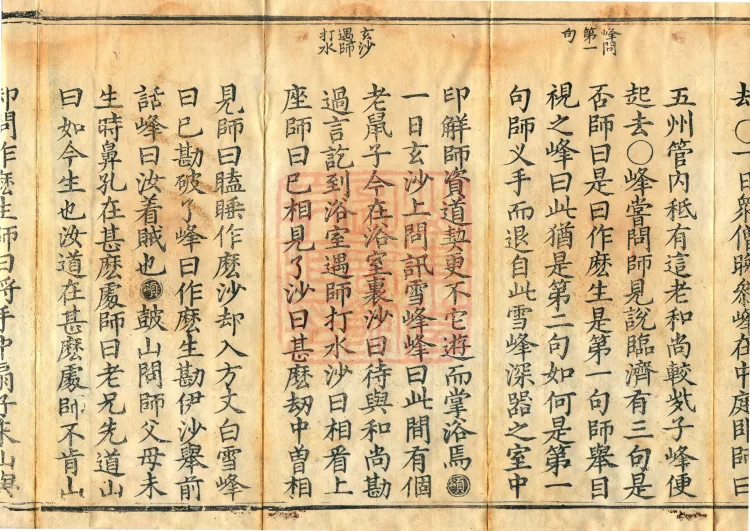 峰問
第一
句
玄沙
遇師
打水
去〇一日衆僧晚參峰在中庭臥師曰
五州管內秖有這老和尚較些子峰便
起去〇峰甞問師見說臨濟有三句是
否師曰是曰作麽生是第一句師舉目
視之峰曰此猶是第二句如何是第一
句師叉手而退自此雪峰深器之室中
印解師資道契更不它遊而掌浴焉頌
一日玄沙上問訊雪峰峰曰此間有個
老鼠子今在浴室裏沙曰待與和尚勘
過言訖到浴室遇師打水沙曰相看上
座師曰已相見了沙曰甚麽劫中曾相
見師曰瞌睡作麽沙却入方丈白雪峰
曰已勘破了峰曰作麽生勘伊沙舉前
話峰曰汝着賊也頌皷山問師父母未
生時鼻孔在甚麽處師曰老兄先道山
曰如今生也汝道在甚麽處師不肯山
却問作麽生師曰將手中扇子來山與